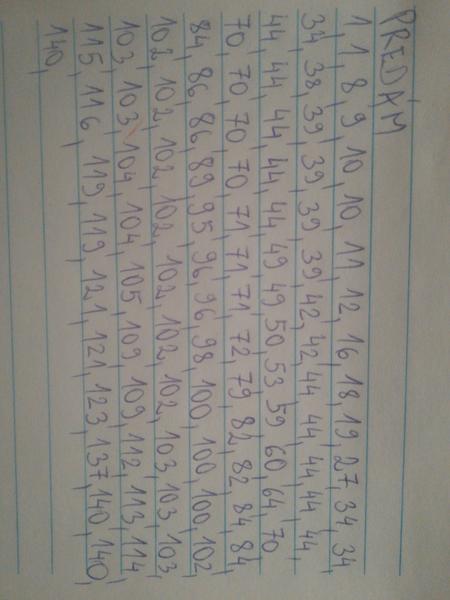 PREDÁM
1, 1, 8, 9, 10, 10, 11, 12, 16, 18, 19, 27, 34, 34
34, 38, 39, 39, 39, 39, 42, 42, 44, 44, 44, 44, 44,
44, 44, 44, 44, 44, 49, 49, 50, 53, 59, 60, 64, 70
70, 70, 70, 70, 71, 71, 71, 72, 79, 82, 82, 84, 84
84, 86, 86, 89, 95, 96, 96, 98, 100, 100, 100, 102,
102, 102, 102, 102, 102, 102, 102, 102, 103, 103, 103,
103, 103, 104, 104, 105, 109, 109, 112, 113, 114
115, 116, 119, 119, 121, 121, 123, 137, 140, 140,
140,